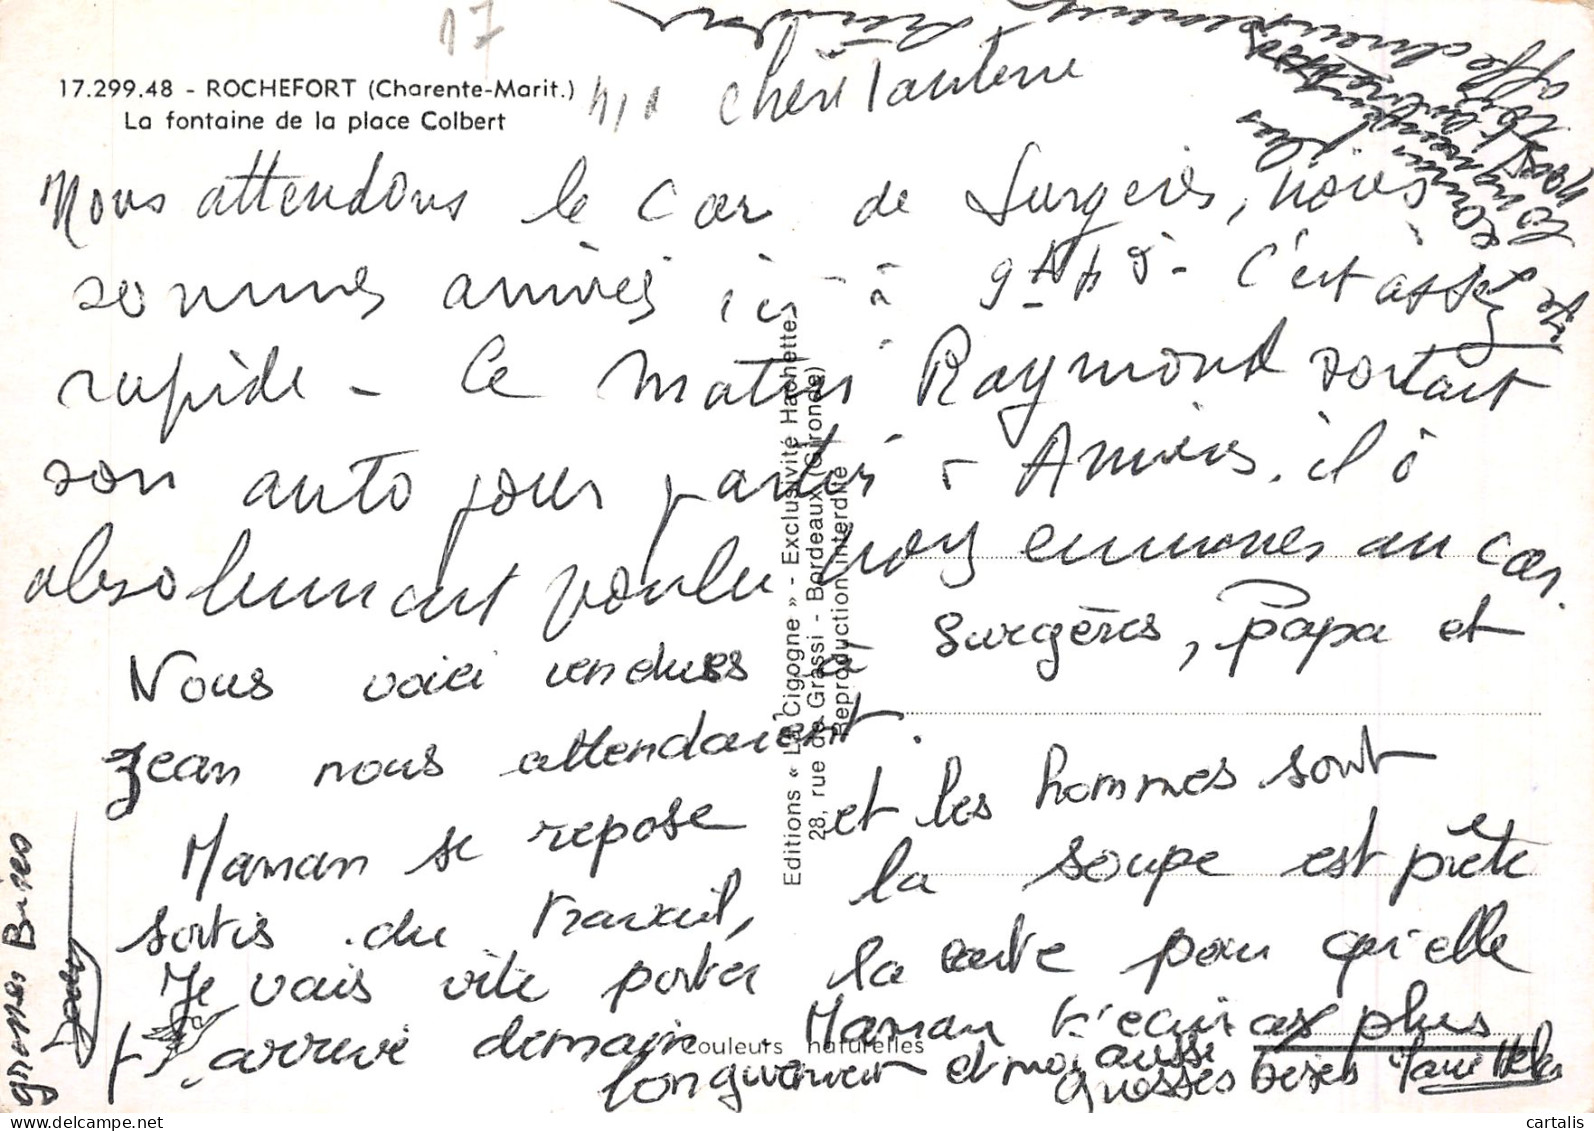 17
17.299.48 - ROCHEFORT (Charente-Marit.)
La fontaine de la place Colbert
Nous attendons le car de Surgères, nous
sommes arrivés ici à 9h - C'est assez
rapide - Ce matin Raymond sortait
son auto pour partir à Amiens, il a
absolument voulu nous emmener au car.
Nous voici rendues à Surgères, Papa et
Jean nous attendaient.
Maman se repose et les hommes sont
sortis du travail, la soupe est prête
Je vais vite porter la carte pour qu'elle
t'arrive demain. Maman t'écrira plus
longuement et moi aussi
grosses bises
grosses Bises
Editions « La Cigogne » - Exclusivité Hachette
28, rue de Grassi - Bordeaux (Gironde)
Reproduction interdite
Couleurs naturelles
cartalis